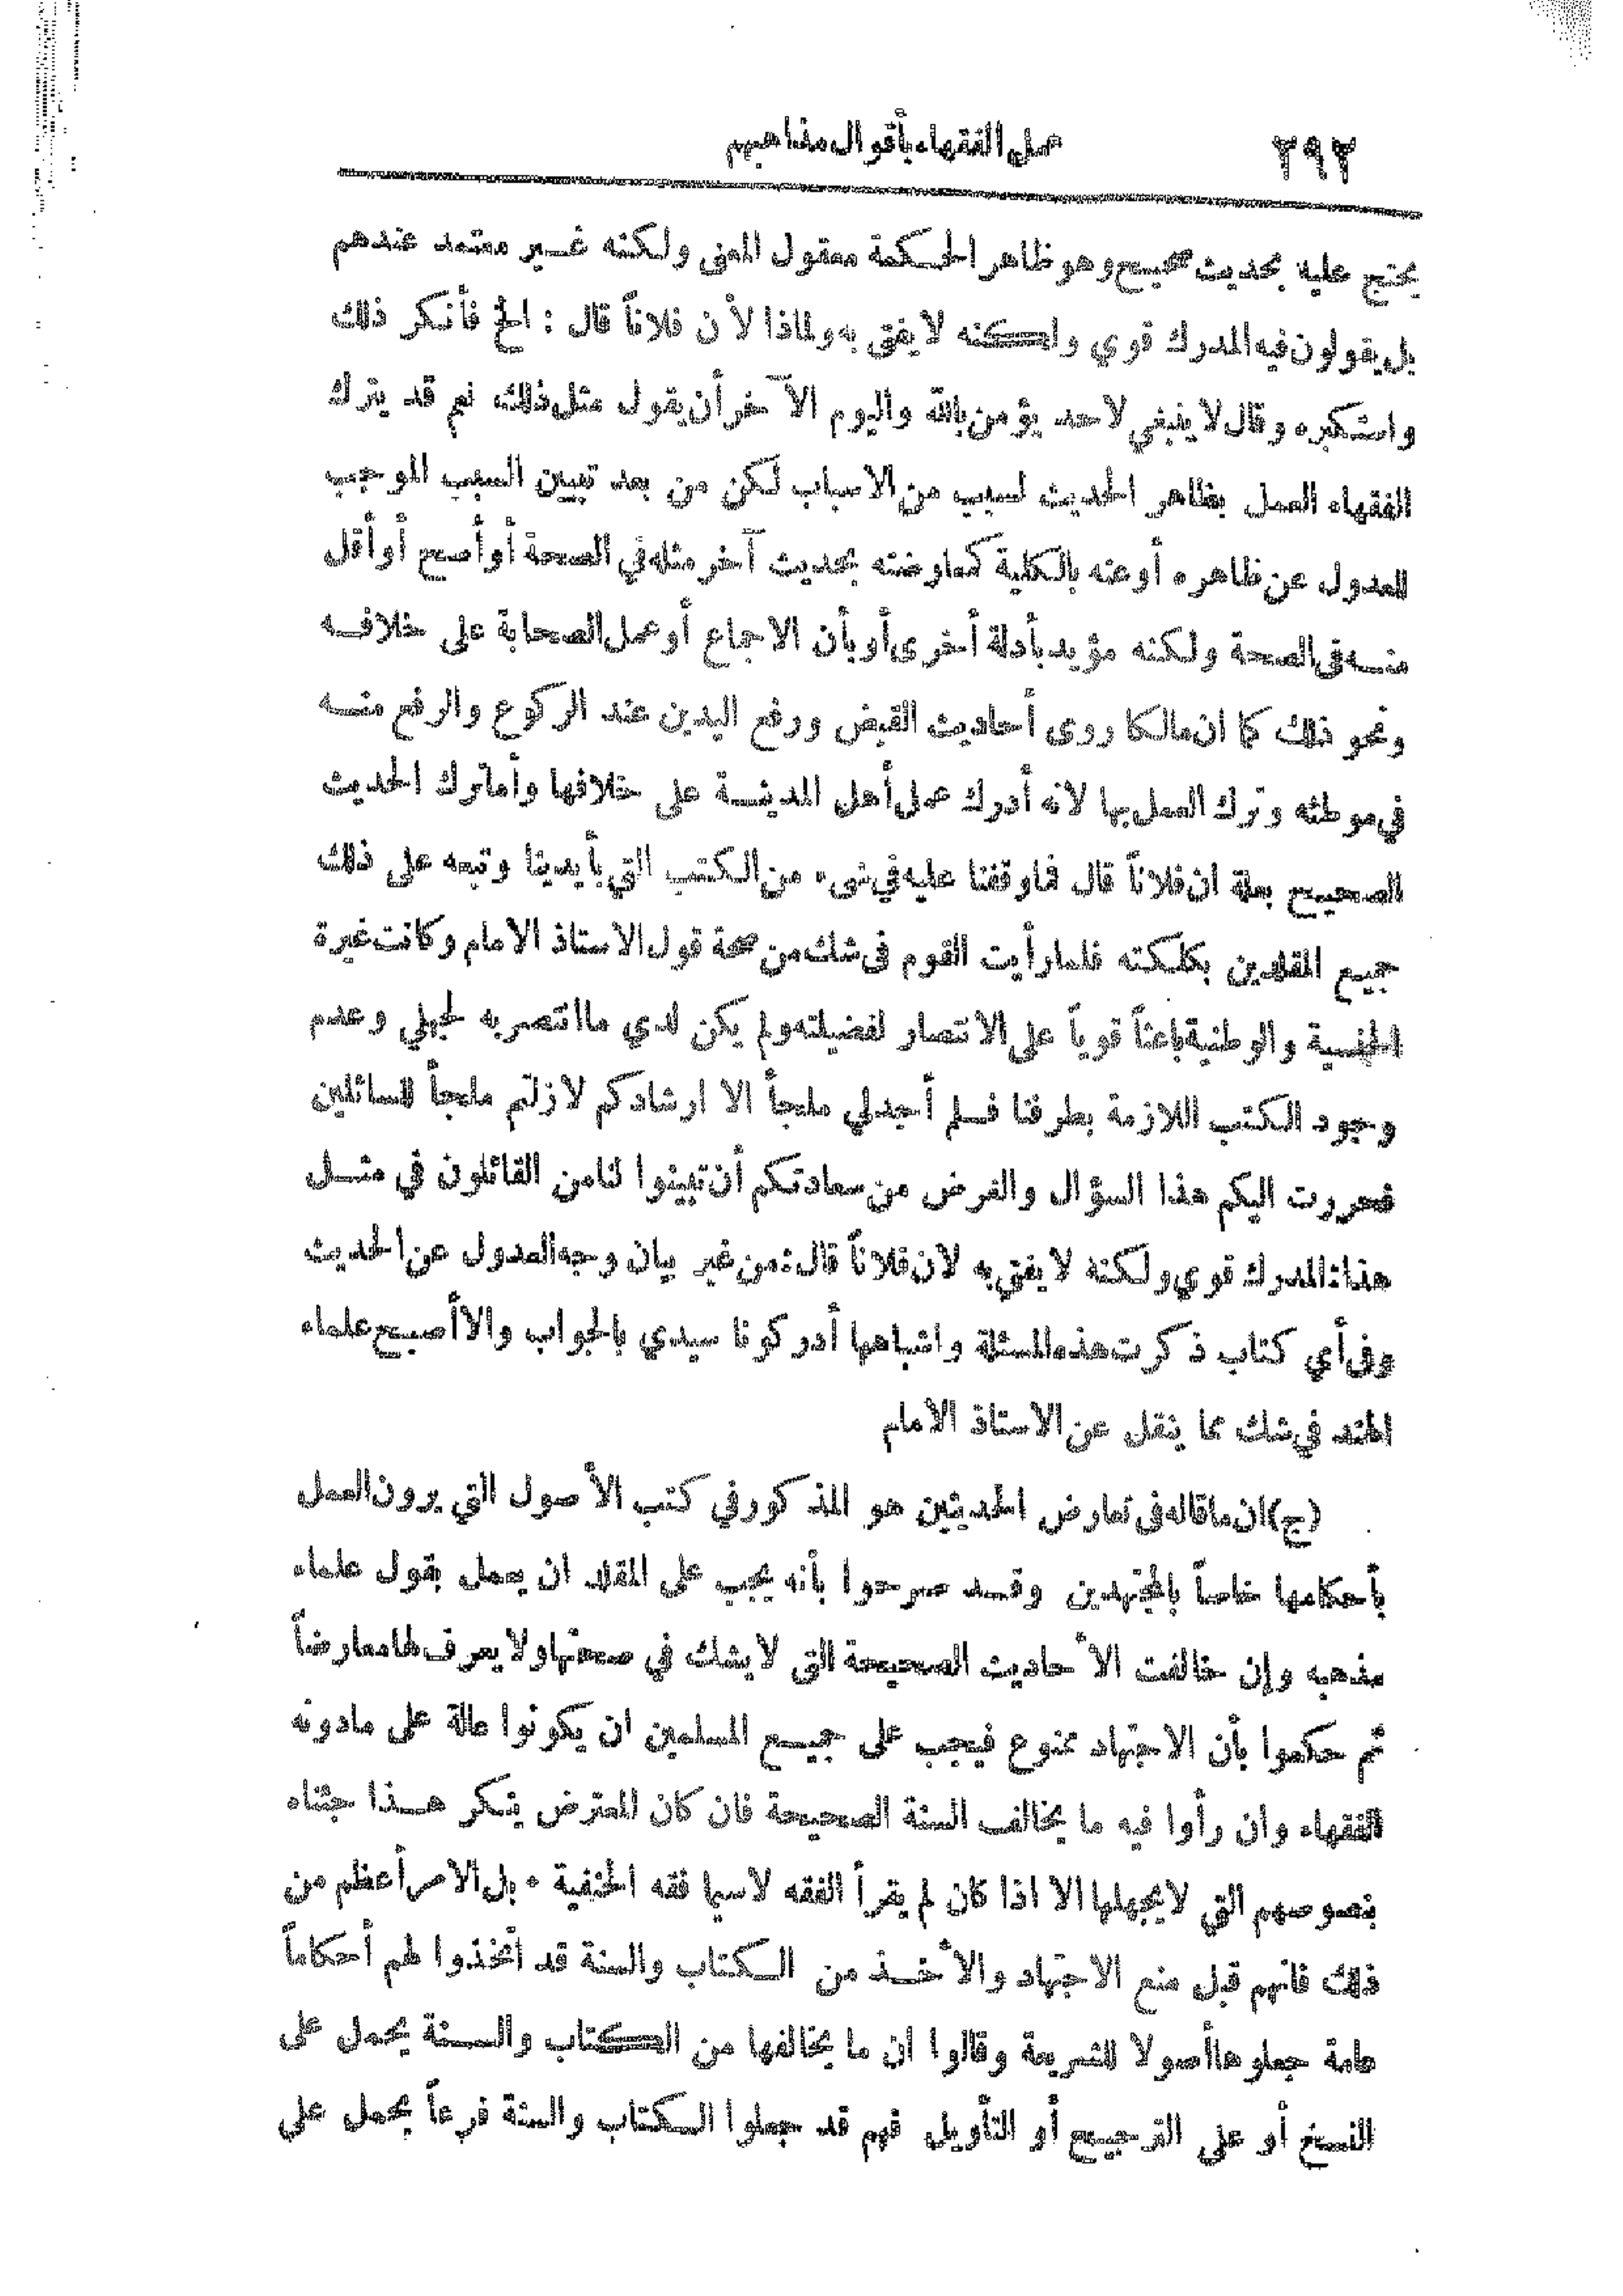 ٢٩٢
عمل الفقهاء بأقوال مذاهبهم
يحتج عليه بحديث صحيح وهو ظاهر الحكمة معقول المعنى ولكنه غير معتمد عندهم
بل يقولون فيه المدرك قوي ولكنه لا يفتى به ولماذا لأن فلاناً قال : الخ فأنكر ذلك
واستكبره وقال لا ينبغي لاحد يؤمن بالله واليوم الآخر أن يقول مثل ذلك، نعم قد يترك
الفقهاء العمل بظاهر الحديث لسبب من الاسباب لكن من بعد تبيين السبب الموجب
للعدول عن ظاهره أو عنه بالكلية كمعاوضته بحديث آخر مثله في الصحة أو أصح أو أقل
منه في الصحة ولكنه مؤيد بأدلة أخرى أو بأن الاجماع أو عمل الصحابة على خلافه
ونحو ذلك كما ان مالكا روى أحاديث القبض ورفع اليدين عند الركوع والرفع منه
في موطئه وترك العمل بها لانه أدرك عمل أهل المدينة على خلافها وأما ترك الحديث
الصحيح بعلة ان فلاناً قال فما وقفنا عليه في شيء من الكتب التي بأيدينا وتبعه على ذلك
جميع المقلدين بكلكته فلما رأيت القوم في شك من صحة قول الاستاذ الامام وكانت غيرة
الجنسية والوطنية باعثاً قوياً على الانتصار لفضيلته ولم يكن لدي ما انتصر به لجهلي وعدم
وجود الكتب اللازمة بطرفنا فلم أجد لي ملجأ الا ارشادكم لا زلتم ملجأ للسائلين
فحررت اليكم هذا السؤال والغرض من سعادتكم أن تبينوا لنا من القائلون في مثل
هذا: المدرك قوي ولكنه لا يفتي به لان فلاناً قال: من غير بيان وجه العدول عن الحديث
وفي أي كتاب ذكرت هذه المسئلة واشباهها أدركونا سيدي بالجواب والا أصبح علماء
الهند في شك مما ينقل عن الاستاذ الامام
(ج) ان ما قاله في تعارض الحديثين هو المذكور في كتب الأصول التي يرون العمل
بأحكامها خاصاً بالمجتهدين وقد صرحوا بأنه يجب على المقلد ان يعمل بقول علماء
مذهبه وإن خالفت الأحاديث الصحيحة التي لا يشك في صحتها ولا يعرف لها معارضاً
ثم حكموا بأن الاجتهاد ممنوع فيجب على جميع المسلمين ان يكونوا عالة على ما دونه
الفقهاء وان رأوا فيه ما يخالف السنة الصحيحة فان كان المعترض ينكر هذا جئناه
بنصوصهم التي لا يجهلها الا اذا كان لم يقرأ الفقه لا سيما فقه الحنفية ٠ بل الامر أعظم من
ذلك فانهم قبل منع الاجتهاد والأخذ من الكتاب والسنة قد اتخذوا لهم أحكاماً
عامة جعلوها أصولا للشريعة وقالوا ان ما يخالفها من الكتاب والسنة يحمل على
النسخ أو على الترجيح أو التأويل فهم قد جعلوا الكتاب والسنة فرعاً يحمل على